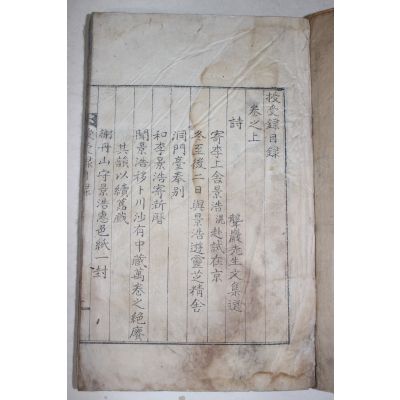 投受錄目錄
卷之上
聾巖先生文集選
詩
寄李上舍景浩滉赴試在京
冬至後二日與景浩遊靈芝精舍
洞門臺奉别
和李景浩寄新曆
聞景浩移卜川沙有中藏萬卷之絶賡
其韻以續舊藏
謝丹山守景浩惠色紙一封